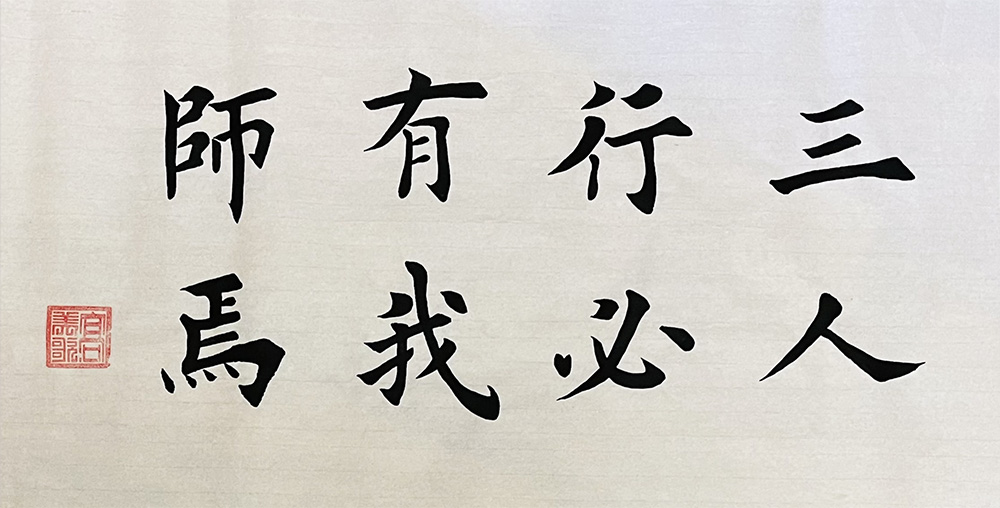 三人
行必
有我
師焉